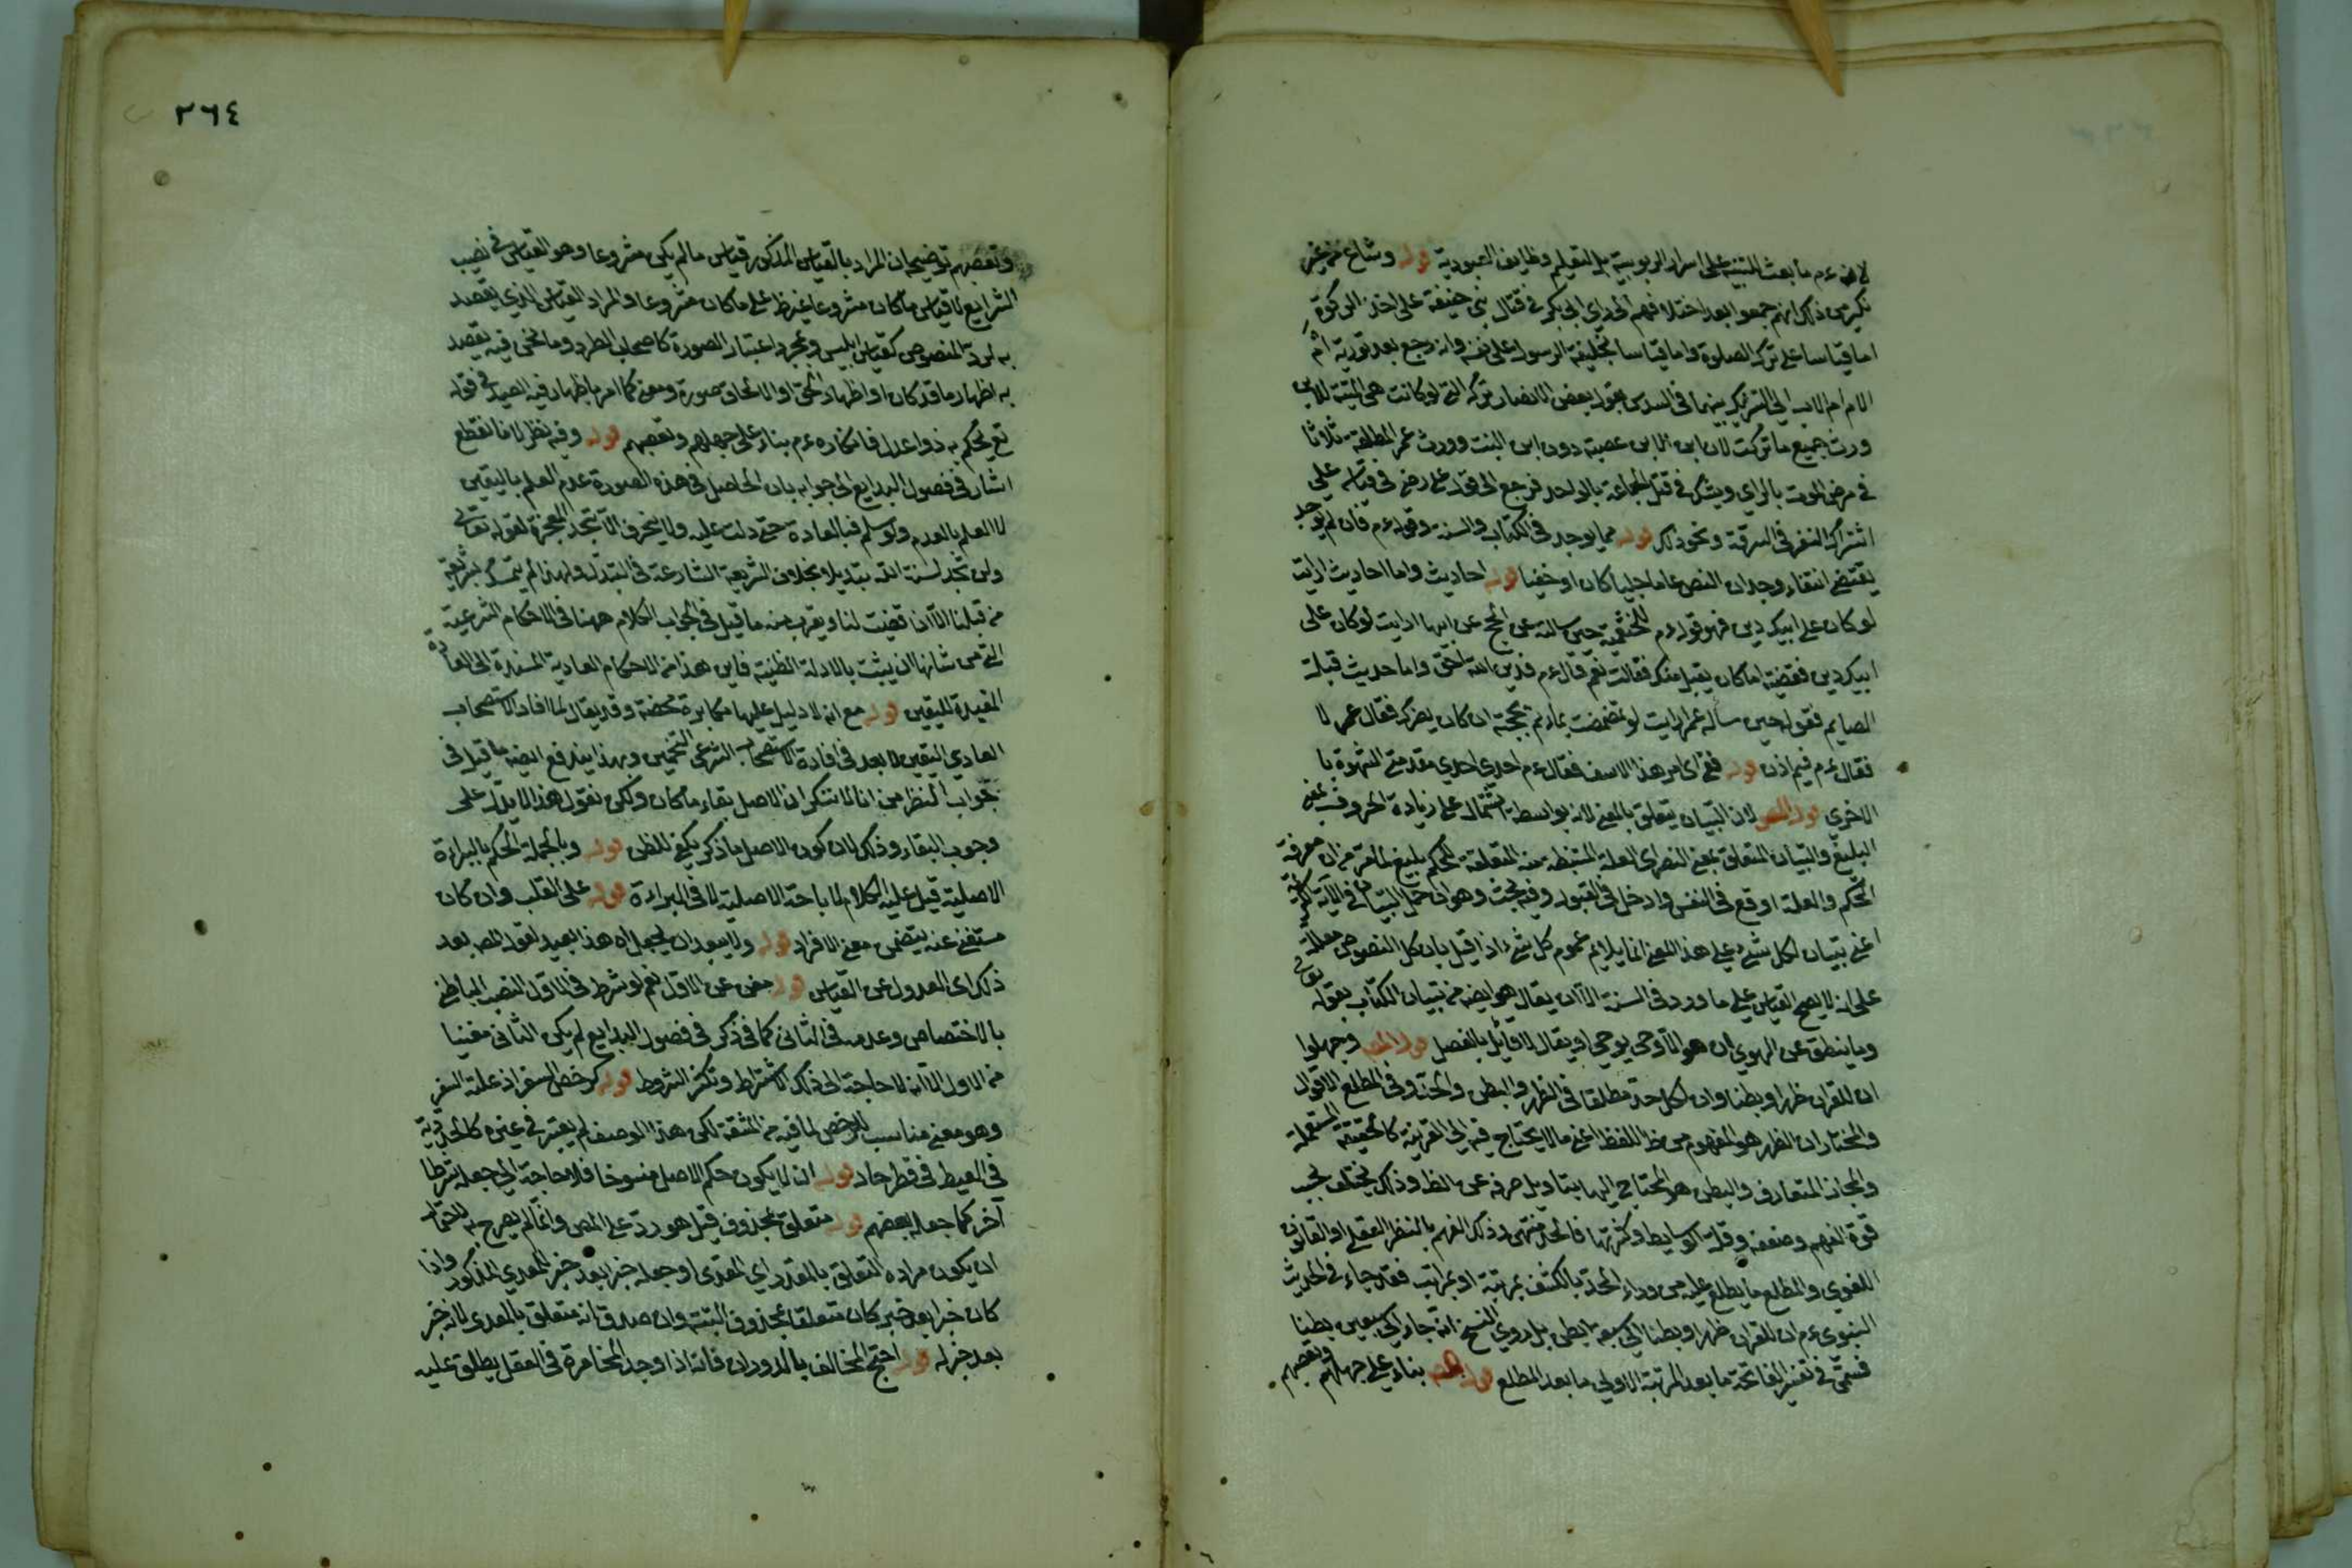 لانه ءم ما بعث للتنبيه على اسرار الربوبية بل لتعليم وظايف العبودية قوله وشاع من غير
نكير من ذلك انهم جمعوا بعد اختلافهم الى راى ابى بكر فى قتال بنى حنيفة على اخذ الزكوة
اما قياسا على ترك الصلوة واما قياسا لخليفة الرسول على نفسه وانه رجع بعد توريثه ام
الام ام الاب الى التشريك بينهما فى السدس بقول بعض الانصار تركت التى لو كانت هى الميتة للابن
ورث جميع ما تركت لان ابن الابن عصبة دون ابن البنت وورث عمر المطلقة ثلاثا
فى مرض الموت بالراى ويشك فى قتل الجماعة بالواحد فرجع الى قول على رضه فى قياسه على
اشتراك النفر فى السرقة ونحو ذلك قوله مما يوجد فى الكتاب والسنة وقوله ءم فان لم يوجد
يقتضى انتفاء وجدان النص عاما جليا كان او خفيا قوله احاديث واما احاديث ارايت
لو كان على ابيك دين فهو قوله ءم للخثعمية حين سالته عن الحج عن ابيها ارايت لو كان على
ابيك دين فقضيته اما كان يقبل منك فقالت نعم قال ءم فدين الله احق واما حديث قبلة
الصايم فقوله حين ساله عمر ارايت لو تمضمضت بماء ثم مججته اكان يضرك فقال عمر لا
فقال ءم ففيم اذن قوله ففى اى امر هذا الاسف فقال ءم احدى مقدمتى الشهوة با
الاخرى قوله المص لان التبيان يتعلق بالمعنى لانه بواسطة اشتمال على زيادة الحروف بمعنى
البليغ والتبيان المتعلق بمعنى النص اى العلة المستنبطة منه المتعلقة للحكم بليغ لما تقرر من ان معرفة
الحكم والعلة اوقع فى النفس وادخل فى القبول وفيه بحث وهو ان حمل التبيان فى الآية الكريمة
اعنى تبيانا لكل شىء على هذا المعنى انما يلايم عموم كل شىء اذا قيل بان كل النصوص معللة
على انه لا يصح القياس على ما ورد فى السنة الا ان يقال هو ايضا من تبيان الكتاب بقوله تعالى
وما ينطق عن الهوى ان هو الا وحى يوحى او يقال لا قائل بالفصل قوله المص وجهلوا
ان للقران ظهرا وبطنا وان لكل حد مطلعا فى الظهر والبطن والحد وفى المطلع الاقوال
والمختار ان الظهر هو المفهوم من ظ اللفظ اعنى ما لا يحتاج فيه الى القرينة كالحقيقة المستعملة
والمجاز المتعارف والبطن هو المحتاج اليها بتاويل صرفه عن الظ وذلك يختلف بحسب
قوة الفهم وضعفه وقلة الوسايط وكثرتها فالحد منتهى ذلك الفهم بالنظر العقلى او القانون
اللغوى والمطلع ما يطلع عليه من وراء الحد بالكشف بمرتبة او بمراتب فقد جاء فى الحديث
النبوى ءم ان للقران ظهرا وبطنا الى سبعة ابطن بل روى الشيخ انه جاء الى سبعين بطنا
فسمى فى تفسير الفاتحة ما بعد المرتبة الاولى ما بعد المطلع قوله المص بناء على جهلهم وتعصبهم
٣٦٤
وتعصبهم توضيحه ان المراد بالقياس المذكور قياس ما لم يكن مشروعا وهو القياس فى نصب
الشرايع لا قياس ما كان مشروعا على ما كان مشروعا والمراد القياس الذى يقصد
به لرد المنصوص كقياس ابليس وبمجرد اعتبار الصورة كاصحاب الطرد وما نحن فيه يقصد
به اظهار ما قد كان او اظهار الحق او الالحاق صورة ومعنى كما امر باظهار فيه الصيد فى قوله
تع يحكم به ذوا عدل فانكاره ءم بناء على جهلهم وتعصبهم قوله وفيه نظر لانا نقطع
اشار فى فصول البدايع الى جوابه بان الحاصل فى هذه الصورة عدم العلم باليقين
لا العلم بالعدم ولو سلم فبالعادة حتى دلت عليه ولا ينخرق الا بتجدد المعجزة لقوله تعالى
ولن تجد لسنة الله تبديلا بخلاف الشريعة الشارعة فى التبدل ولهذا لم يتمسك بشريعة
من قبلنا الا ان قضيت لنا ويقرب منه ما قيل فى الجواب الكلام ههنا فى الاحكام الشرعية
التى من شانها ان يثبت بالادلة الظنية فاين هذا من الاحكام العادية المستندة الى العادة
المفيدة لليقين قوله مع انه لا دليل عليها مكابرة محضة وقد يقال لما افاد الاستصحاب
العادى اليقين لا بعد فى افادة الاستصحاب الشرعى التخمين وبهذا يندفع ايضا ما قيل فى
جواب النظر من انا لا ننكر ان الاصل بقاء ما كان ولكن نقول هذا لا يدل على
وجوب البقاء وذلك لان كون الاصل ما ذكر يكفى للظن قوله وبالجملة الحكم بالبراءة
الاصلية قيل عليه الكلام لاباحة الاصلية لا فى البراءة قوله على القلب وان كان
مستغنى عنه يتضمن معنى الافراد قوله ولا يبعد ان يجعل اه هذا بعيد لقول المص بعد
ذلك اى العدول عن القياس قوله مغن عن الاول نعم لو شرط فى الاول النصب الباطنى
بالاختصاص وعدمه فى الثانى كما فى ذكر فى فصول البدايع لم يكن الثانى مغنيا
من الاول الا انه لا حاجة الى ذلك الاشتراط وتكثر الشروط قوله كرخص السفر اذ علته السفر
وهو معنى مناسب للرخص لما فيه من المشقة لكن هذا الوصف لم يعتبر فى غيره كالحدادية
فى القيظ فى قطر حار قوله ان لا يكون حكم الاصل منسوخا فلا حاجة الى جعله شرطا
آخر كما جعله بعضهم قوله متعلق بمحذوف قيل هو رد على المص وانما لم يصرح به لاحتمال
ان يكون مراده التعلق بالمقدر اى المعدى او جعله خبرا بعد خبر للمعدى المذكور واذا
كان خبرا بعد خبر كان متعلقا بمحذوف البتة وان صدق انه متعلق بالمعدى لانه خبر
بعد خبر له قوله احتج المخالف بالدوران فانه اذا وجد المخامرة فى العقل يطلق عليه